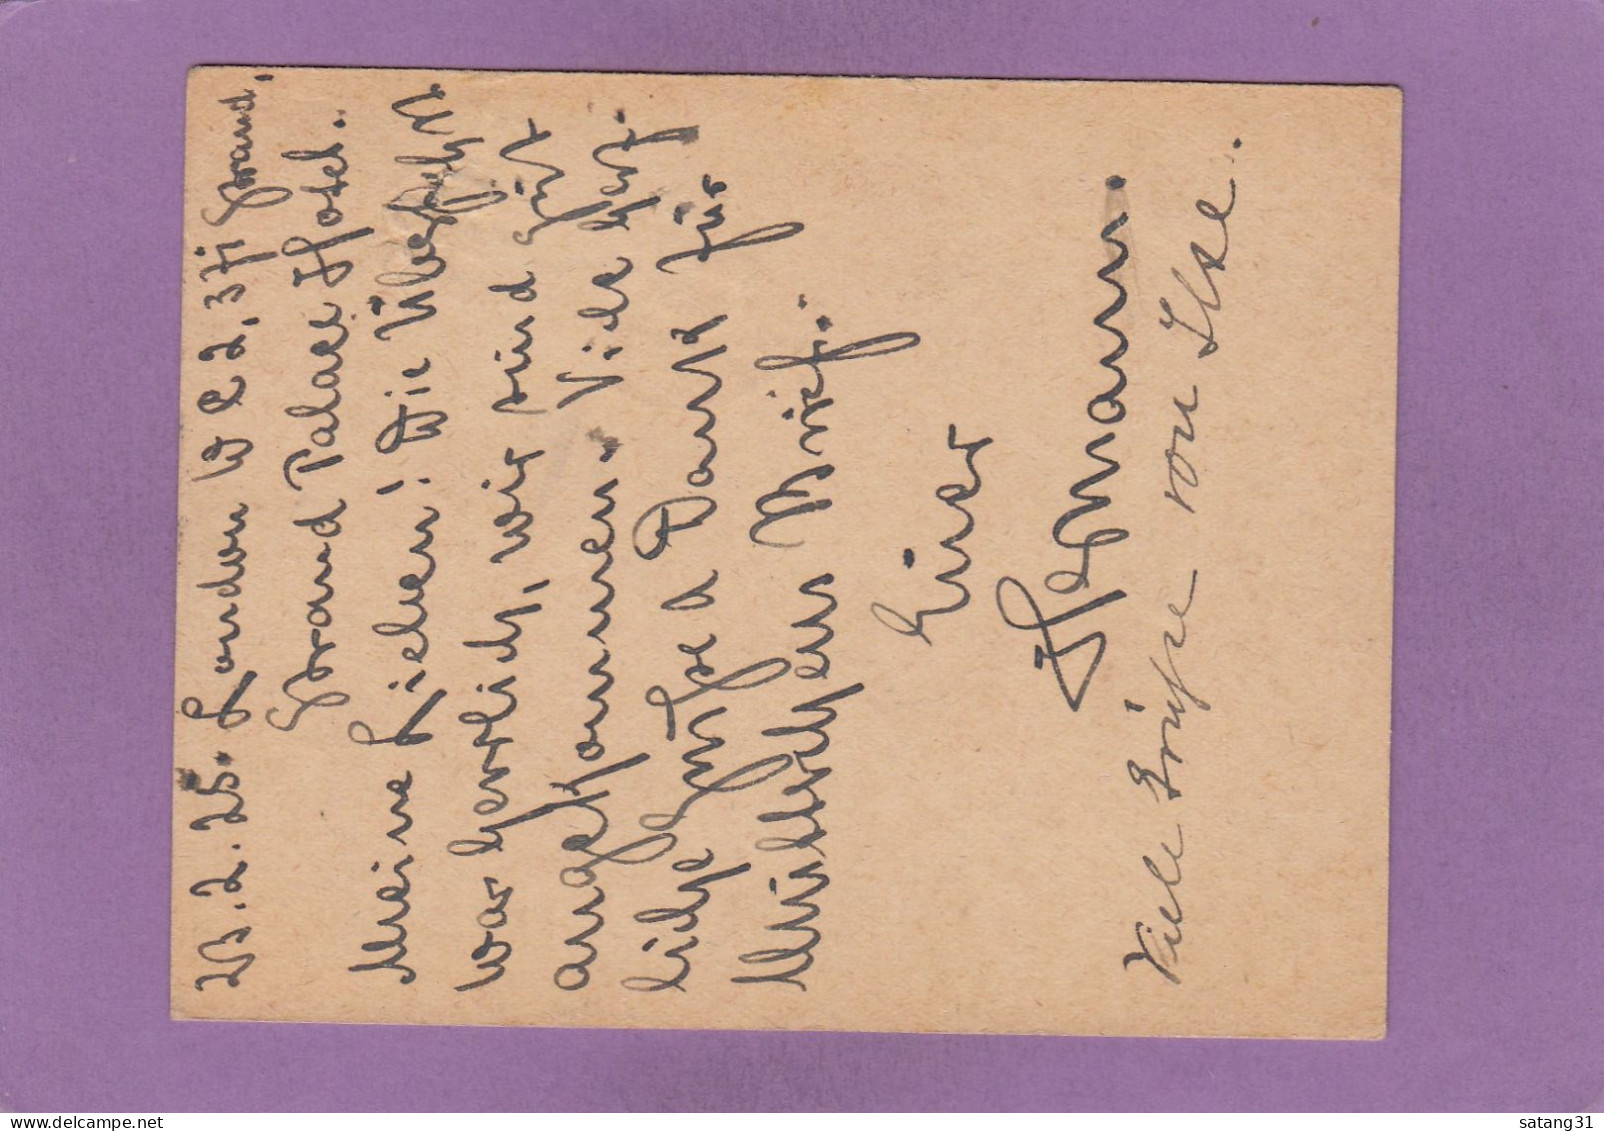 23.2.25. London W C 2, 371 Strand,
Strand Palace Hotel.
Meine Lieben! Die Überfahrt
war herrlich, wir sind gut
angekommen. Viele herz-
liche Grüße u Dank für
Mütterchens Brief.
Euer
Hermann.
Viele Grüsse von Ilse.
satang31